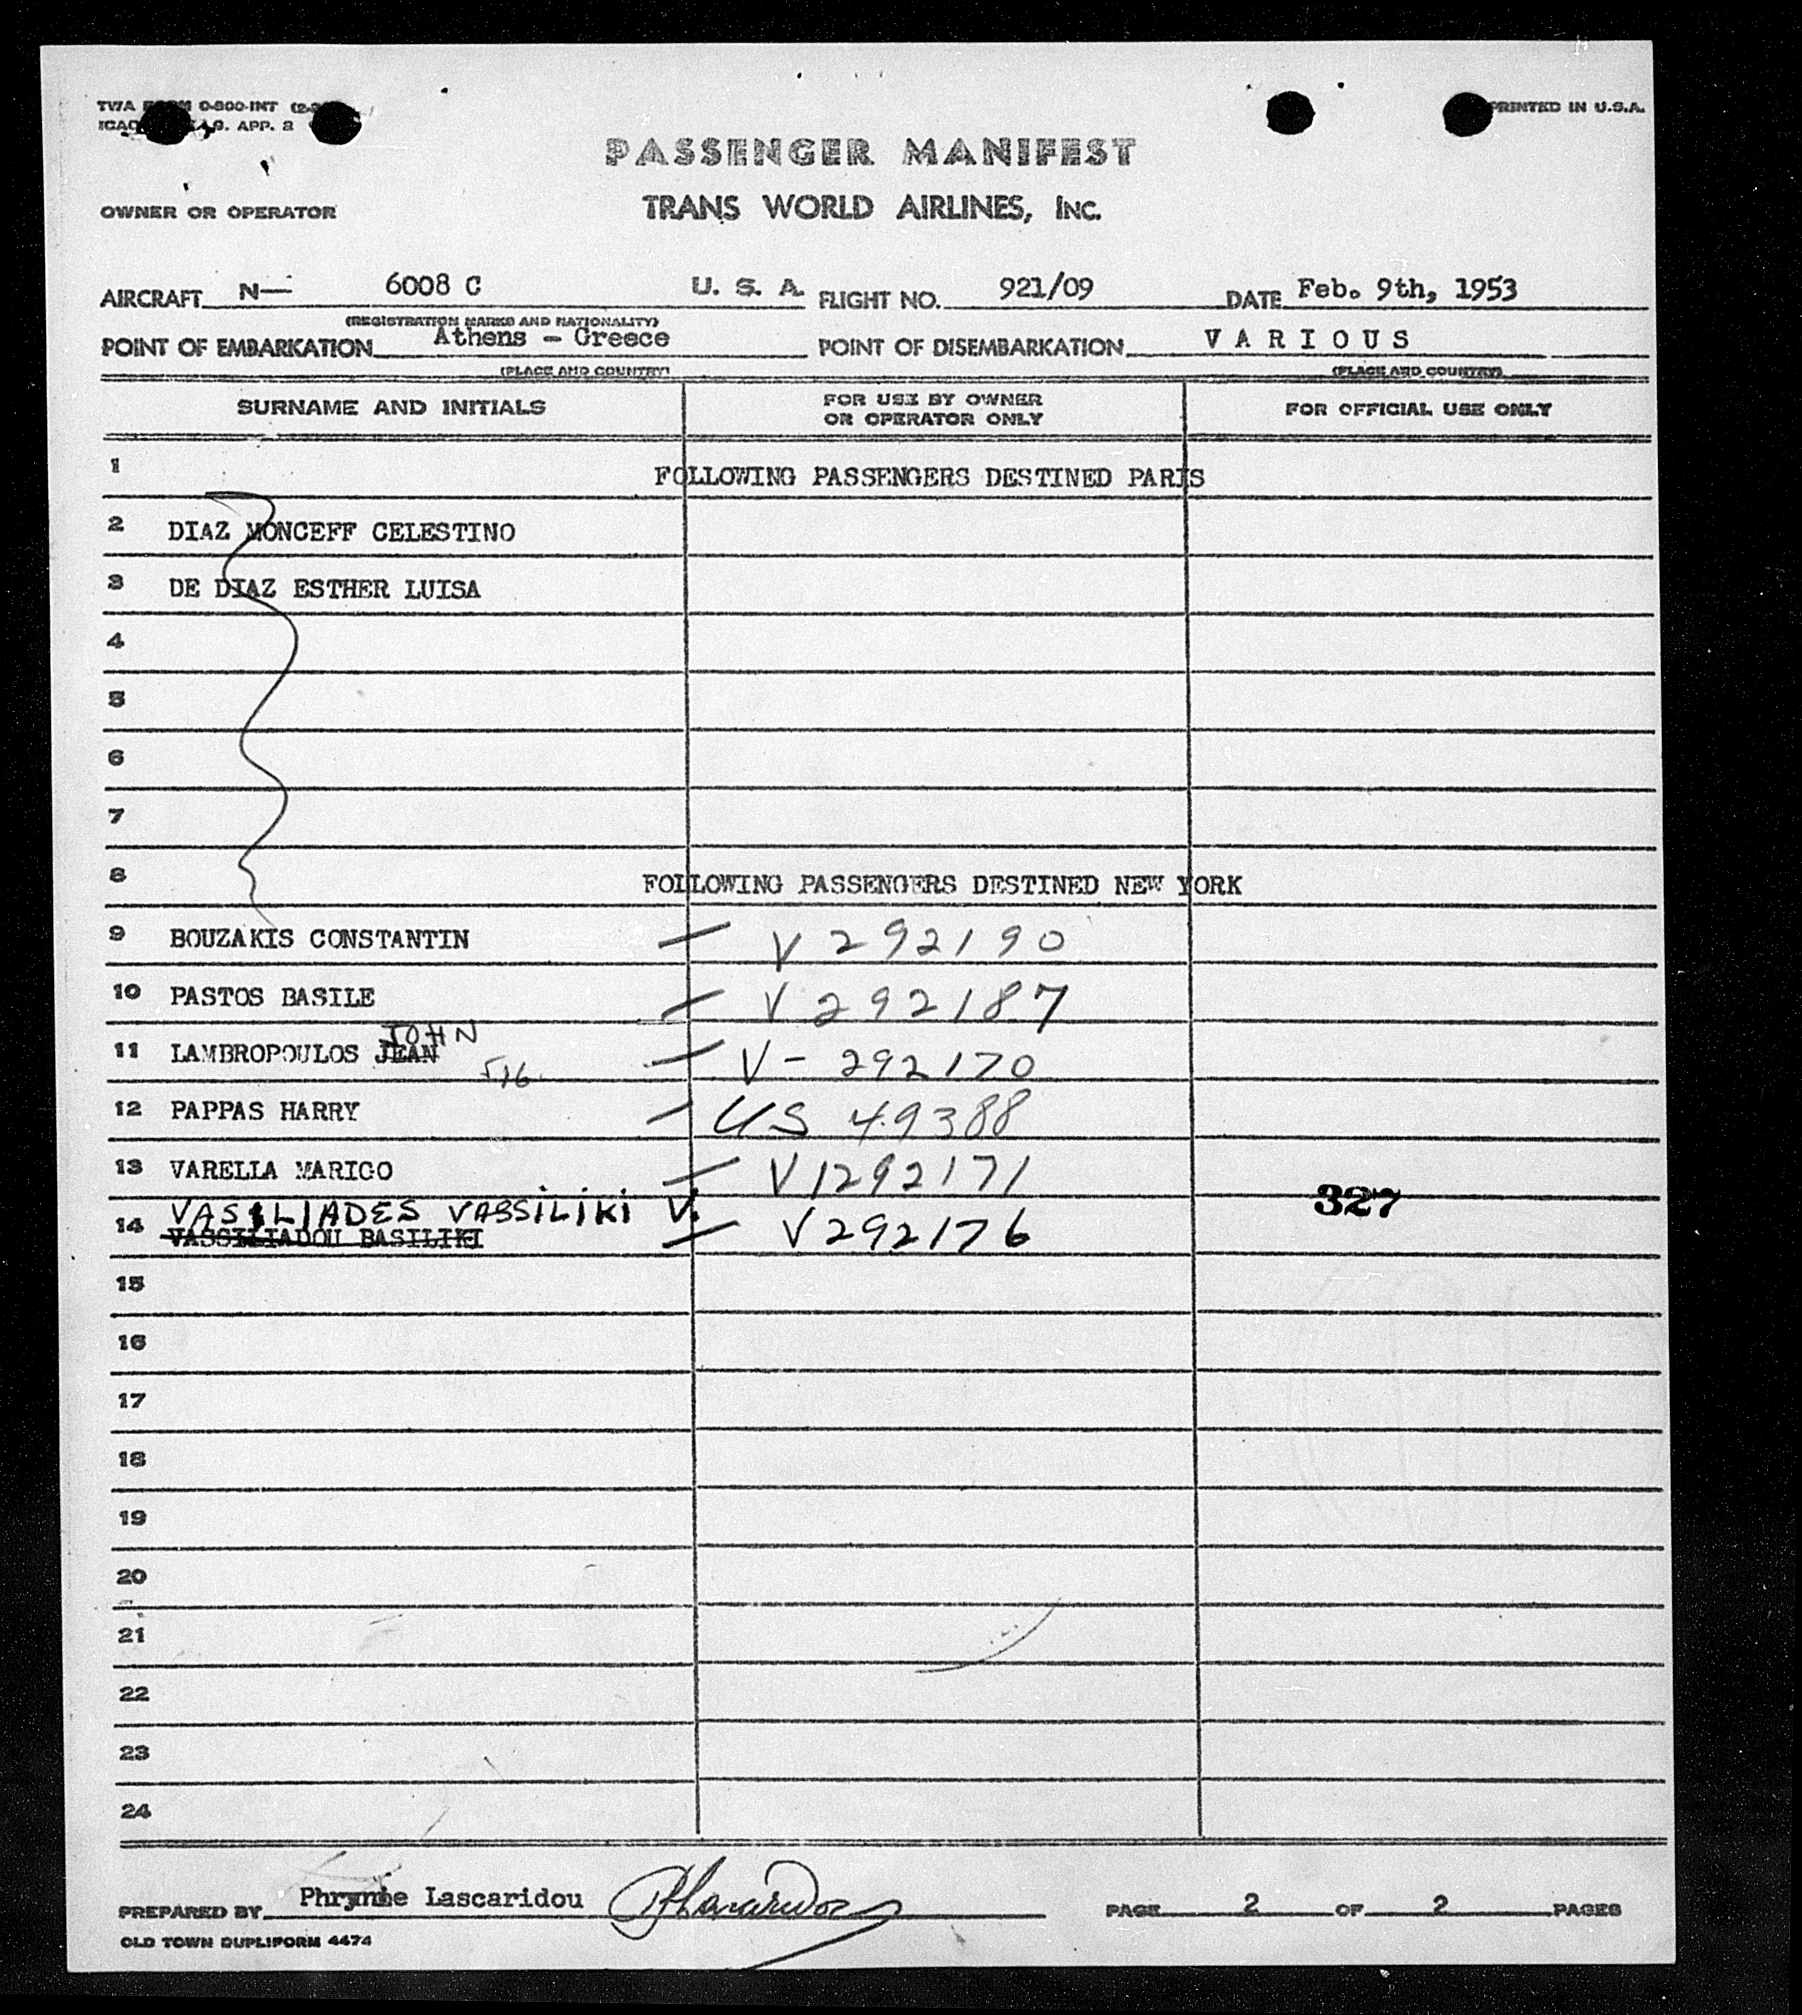 TWA FORM O-800-INT
ICAO APP. 2
PRINTED IN U.S.A.
PASSENGER MANIFEST
OWNER OR OPERATOR
TRANS WORLD AIRLINES, INC.
AIRCRAFT N— 6008 C U. S. A. FLIGHT NO. 921/09 DATE Feb. 9th, 1953
(REGISTRATION MARKS AND NATIONALITY)
POINT OF EMBARKATION Athens - Greece POINT OF DISEMBARKATION V A R I O U S
(PLACE AND COUNTRY) (PLACE AND COUNTRY)
SURNAME AND INITIALS FOR USE BY OWNER OR OPERATOR ONLY FOR OFFICIAL USE ONLY
1 FOLLOWING PASSENGERS DESTINED PARIS
2 DIAZ MONCEFF CELESTINO
3 DE DIAZ ESTHER LUISA
4
5
6
7
8 FOLLOWING PASSENGERS DESTINED NEW YORK
9 BOUZAKIS CONSTANTIN — V 292190
10 PASTOS BASILE — V 292187
JOHN
11 LAMBROPOULOS JEAN — V- 292170
516
12 PAPPAS HARRY — US 49388
13 VARELLA MARIGO — V1292171
VASILIADES VASSILIKI V. 327
14 VASSILIADOU BASILIKI — V292176
15
16
17
18
19
20
21
22
23
24
PREPARED BY Phrynie Lascaridou PAGE 2 OF 2 PAGES
OLD TOWN DUPLIFORM 4474